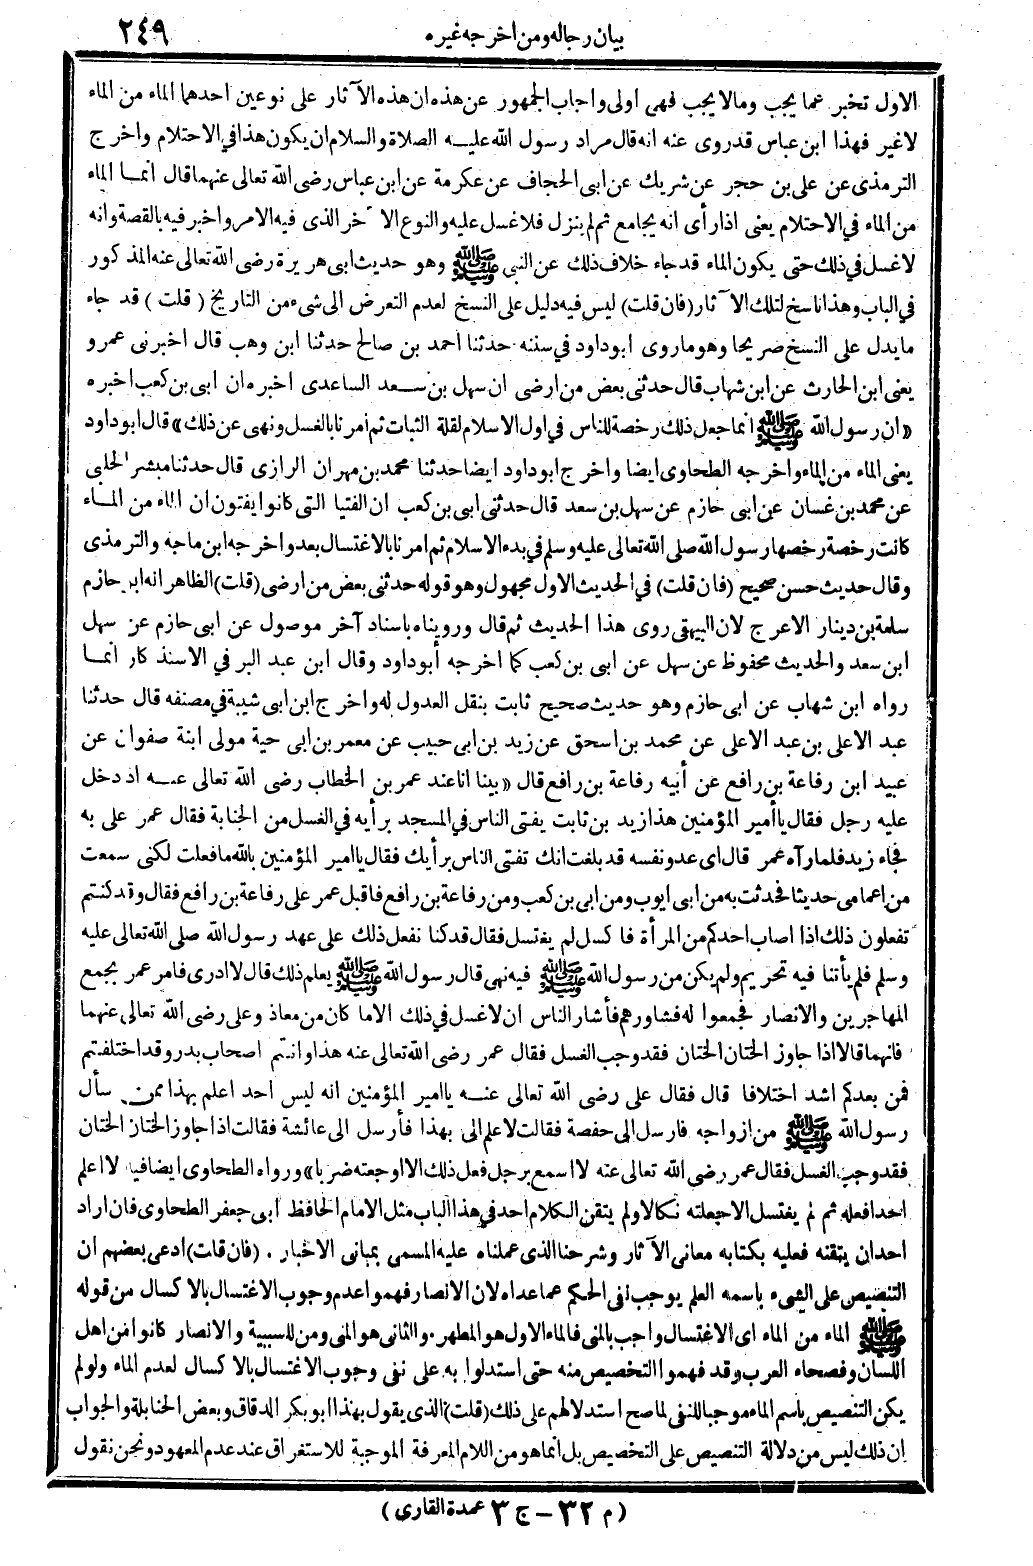 بيان رجاله ومن اخرجه غيره
٢٤٩
الاول تخبر عما يجب ومالايجب فهى اولى واجاب الجمهور عن هذه ان هذه الآثار على نوعين احدهما الماء من الماء
لاغير فهذا ابن عباس قدروى عنه انه قال مراد رسول الله عليه الصلاة والسلام ان يكون هذا في الاحتلام واخرج
الترمذى عن على بن حجر عن شريك عن ابى الحجاف عن عكرمة عن ابن عباس رضى الله تعالى عنهما قال أنما الماء
من الماء في الاحتلام يعنى اذا رأى انه يجامع ثم لم ينزل فلاغسل عليه والنوع الآخر الذى فيه الامر واخبر فيه بالقصة وانه
لاغسل في ذلك حتى يكون الماء قد جاء خلاف ذلك عن النبي ﷺ وهو حديث ابى هريرة رضى الله تعالى عنه المذكور
في الباب وهذا ناسخ لتلك الآثار (فان قلت) ليس فيه دليل على النسخ لعدم التعرض الى شىء من التاريخ (قلت) قد جاء
مايدل على النسخ صريحا وهو ماروى ابوداود في سننه حدثنا احمد بن صالح حدثنا ابن وهب قال اخبرنى عمرو
يعنى ابن الحارث عن ابن شهاب قال حدثنى بعض من ارضى ان سهل بن سعد الساعدى اخبره ان ابى بن كعب اخبره
«ان رسول الله ﷺ انما جعل ذلك رخصة للناس في اول الاسلام لقلة الثبات ثم أمرنا بالغسل ونهى عن ذلك» قال ابوداود
يعنى الماء من الماء واخرجه الطحاوى ايضا واخرج ابوداود ايضا حدثنا محمد بن مهران الرازى قال حدثنا مبشر الحلبى
عن محمد بن غسان عن ابى حازم عن سهل بن سعد قال حدثنى ابى بن كعب ان الفتيا التى كانوا يفتون ان الماء من الماء
كانت رخصة رخصها رسول الله صلى الله تعالى عليه وسلم في بدء الاسلام ثم امرنا بالاغتسال بعد واخرجه ابن ماجه والترمذى
وقال حديث حسن صحيح (فان قلت) في الحديث الاول مجهول وهو قوله حدثنى بعض من ارضى (قلت) الظاهر انه ابو حازم
سلمة بن دينار الاعرج لان البيهقى روى هذا الحديث ثم قال ورويناه باسناد آخر موصول عن ابى حازم عن سهل
ابن سعد والحديث محفوظ عن سهل عن ابى بن كعب كما اخرجه أبوداود وقال ابن عبد البر في الاستذكار أنما
رواه ابن شهاب عن ابى حازم وهو حديث صحيح ثابت بنقل العدول له واخرج ابن ابى شيبة في مصنفه قال حدثنا
عبد الاعلى بن عبد الاعلى عن محمد بن اسحق عن زيد بن ابى حبيب عن معمر بن ابى حية مولى ابنة صفوان عن
عبيد ابن رفاعة بن رافع عن أبيه رفاعة بن رافع قال «بينا انا عند عمر بن الخطاب رضى الله تعالى عنه اذ دخل
عليه رجل فقال ياأمير المؤمنين هذا زيد بن ثابت يفتى الناس في المسجد برأيه في الغسل من الجنابة فقال عمر على به
فجاء زيد فلما رآه عمر قال اى عدو نفسه قد بلغت انك تفتى الناس برأيك فقال ياامير المؤمنين بالله مافعلت لكنى سمعت
من اعمامى حديثا فحدثت به من ابى ايوب ومن ابى بن كعب ومن رفاعة بن رافع فاقبل عمر على رفاعة بن رافع فقال وقد كنتم
تفعلون ذلك اذا اصاب احدكم من المرأة فاكسل لم يغتسل فقال قد كنا نفعل ذلك على عهد رسول الله صلى الله تعالى عليه
وسلم فلم يأتنا فيه تحريم ولم يكن من رسول الله ﷺ فيه نهى قال رسول الله ﷺ يعلم ذلك قال لاادرى فامر عمر بجمع
المهاجرين والانصار فجمعوا له فشاورهم فأشار الناس ان لاغسل في ذلك الاما كان من معاذ وعلى رضى الله تعالى عنهما
فانهما قالا اذا جاوز الختان الختان فقد وجب الغسل فقال عمر رضى الله تعالى عنه هذا وانتم اصحاب بدر وقد اختلفتم
فمن بعدكم اشد اختلافا قال فقال على رضى الله تعالى عنه ياامير المؤمنين انه ليس احد اعلم بهذا ممن سأل
رسول الله ﷺ من ازواجه فارسل الى حفصة فقالت لاعلم الى بهذا فأرسل الى عائشة فقالت اذا جاوز الختان الختان
فقد وجب الغسل فقال عمر رضى الله تعالى عنه لااسمع برجل فعل ذلك الااوجعته ضربا» ورواه الطحاوى ايضا فيه لااعلم
احدا فعله ثم لم يغتسل الاجعلته نكالا ولم يتقن الكلام احد في هذا الباب مثل الامام الحافظ ابى جعفر الطحاوى فان اراد
احد ان يتقنه فعليه بكتابه معانى الآثار وشرحنا الذى عملناه عليه المسمى بمبانى الاخبار . (فان قلت) ادعى بعضهم ان
التنصيص على الشىء باسمه العلم يوجب نفى الحكم عما عداه لان الانصار فهموا عدم وجوب الاغتسال بالاكسال من قوله
ﷺ الماء من الماء اى الاغتسال واجب بالمنى فالماء الاول هو المطهر . والثانى هو المنى ومن للسببية والانصار كانوا من اهل
اللسان وفصحاء العرب وقد فهموا التخصيص منه حتى استدلوا به على نفى وجوب الاغتسال بالاكسال لعدم الماء ولو لم
يكن التنصيص باسم الماء موجبا للنفى لما صح استدلالهم على ذلك (قلت) الذى يقول بهذا ابو بكر الدقاق وبعض الحنابلة والجواب
ان ذلك ليس من دلالة التنصيص على التخصيص بل انما هو من اللام المعرفة الموجبة للاستغراق عند عدم المعهود ونحن نقول
(م ٣٢ – ج ٣ عمدة القارى)